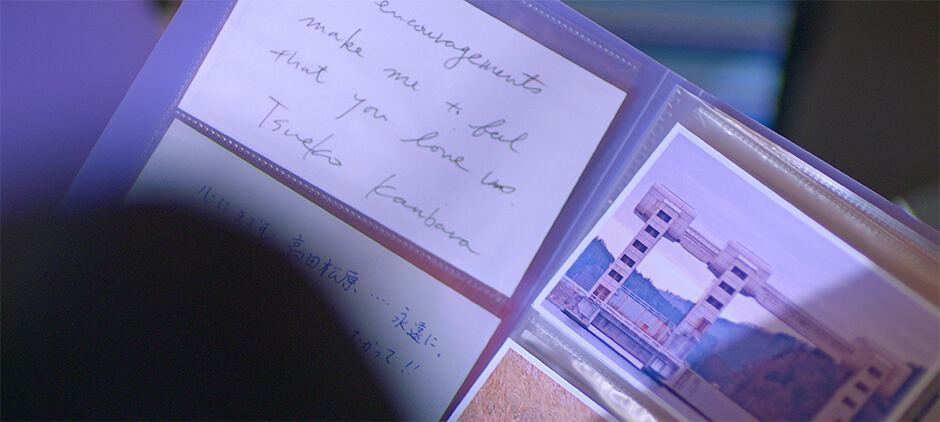 encouragements
make me to feel
that you love us.
Tsuneko Kanbara
心にきざす、高田松原....永遠に。
って!!